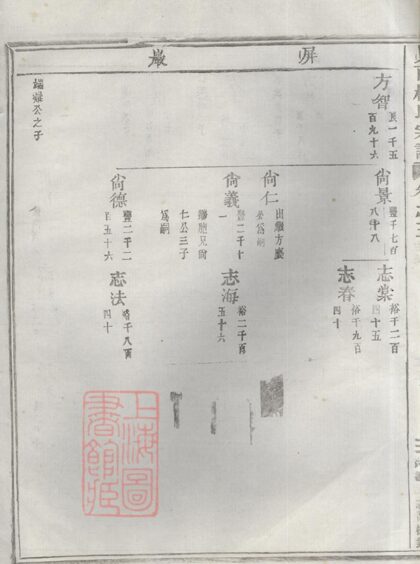 屏巖
方智
良一千五
百九十六
尙景
豐千七百
八十八
志棠
裕千二百
四十五
志春
裕千九百
四十
尙仁
出繼方
公爲嗣
尙義
豐二千十
一
繼胞兄尙
仁公三子
爲嗣
志海
裕二千百
五十六
尙德
豐二千二
百五十六
志法
裕千八百
四十
公之子
上海圖
書館藏